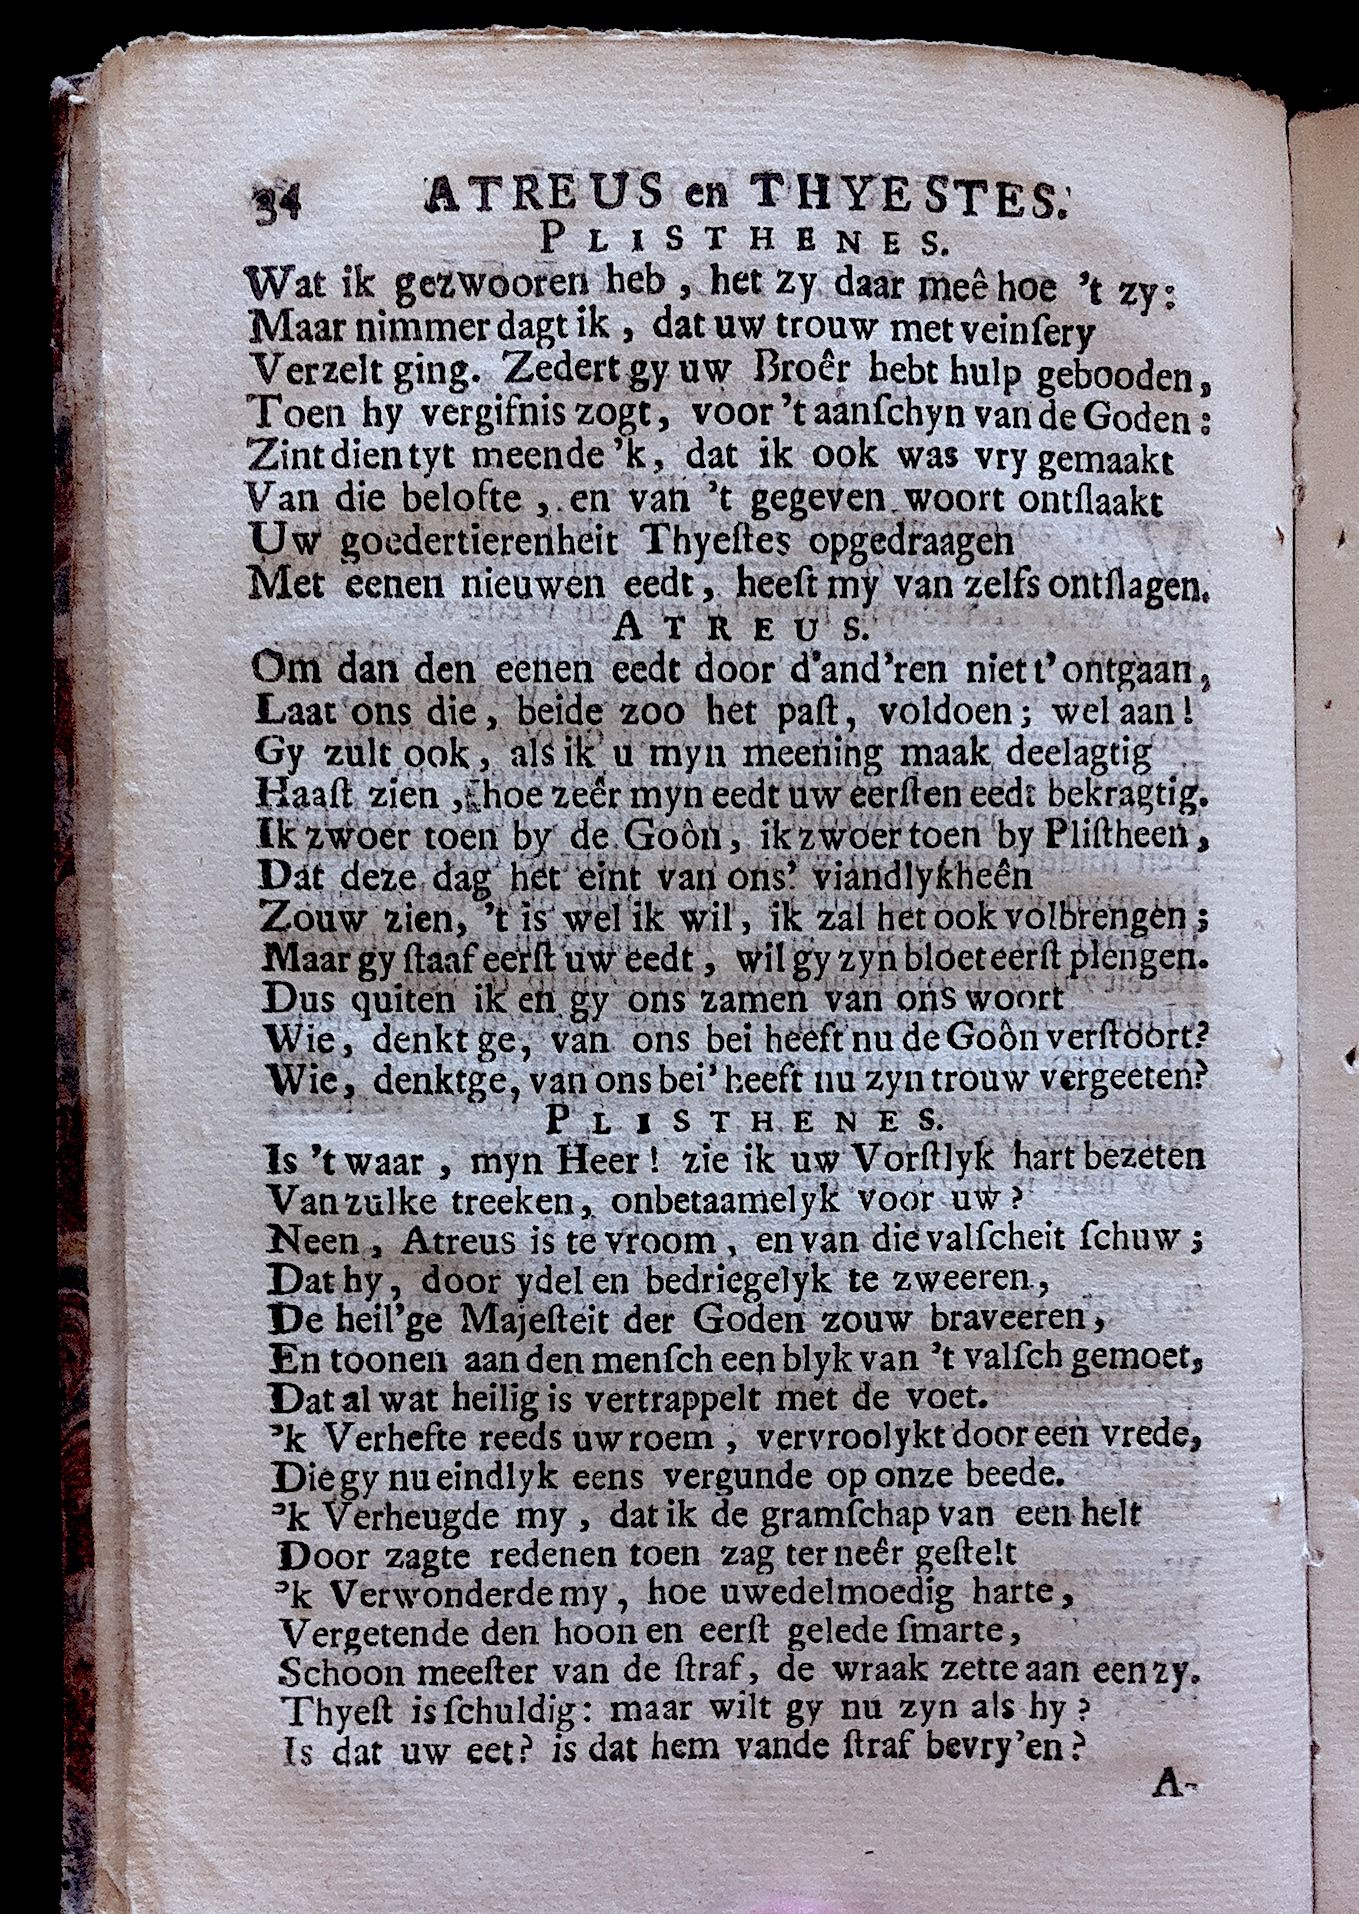 34 ATREUS en THYESTES.
PLISTHENES.
Wat ik gezwooren heb, het zy daar meê hoe 't zy:
Maar nimmer dagt ik, dat uw trouw met veinſery
Verzelt ging. Zedert gy uw Broêr hebt hulp gebooden,
Toen hy vergifnis zogt, voor 't aanſchyn van de Goden:
Zint dien tyt meende 'k, dat ik ook was vry gemaakt
Van die belofte, en van 't gegeven woort ontſlaakt
Uw goedertierenheit Thyeſtes opgedraagen
Met eenen nieuwen eedt, heeſt my van zelfs ontſlagen.
ATREUS.
Om dan den eenen eedt door d'and'ren niet t' ontgaan,
Laat ons die, beide zoo het paſt, voldoen; wel aan!
Gy zult ook, als ik u myn meening maak deelagtig
Haaſt zien, hoe zeêr myn eedt uw eerſten eedt bekragtig.
Ik zwoer toen by de Goôn, ik zwoer toen by Pliſtheen,
Dat deze dag het eint van ons' viandlykheên
Zouw zien, 't is wel ik wil, ik zal het ook volbrengen;
Maar gy ſtaaf eerſt uw eedt, wil gy zyn bloet eerſt plengen.
Dus quiten ik en gy ons zamen van ons woort
Wie, denkt ge, van ons bei heeft nu de Goôn verſtoort?
Wie, denktge, van ons bei' heeft nu zyn trouw vergeeten?
PLISTHENES.
Is 't waar, myn Heer! zie ik uw Vorſtlyk hart bezeten
Van zulke treeken, onbetaamelyk voor uw?
Neen, Atreus is te vroom, en van die valſcheit ſchuw;
Dat hy, door ydel en bedriegelyk te zweeren,
De heil'ge Majeſteit der Goden zouw braveeren,
En toonen aan den menſch een blyk van 't valſch gemoet,
Dat al wat heilig is vertrappelt met de voet.
'k Verhefte reeds uw roem, vervroolykt door een vrede,
Die gy nu eindlyk eens vergunde op onze beede.
'k Verheugde my, dat ik de gramſchap van een helt
Door zagte redenen toen zag ter neêr geſtelt
'k Verwonderde my, hoe uw edelmoedig harte,
Vergetende den hoon en eerſt gelede ſmarte,
Schoon meeſter van de ſtraf, de wraak zette aan een zy.
Thyeſt is ſchuldig: maar wilt gy nu zyn als hy?
Is dat uw eet? is dat hem vande ſtraf bevry'en?
A-